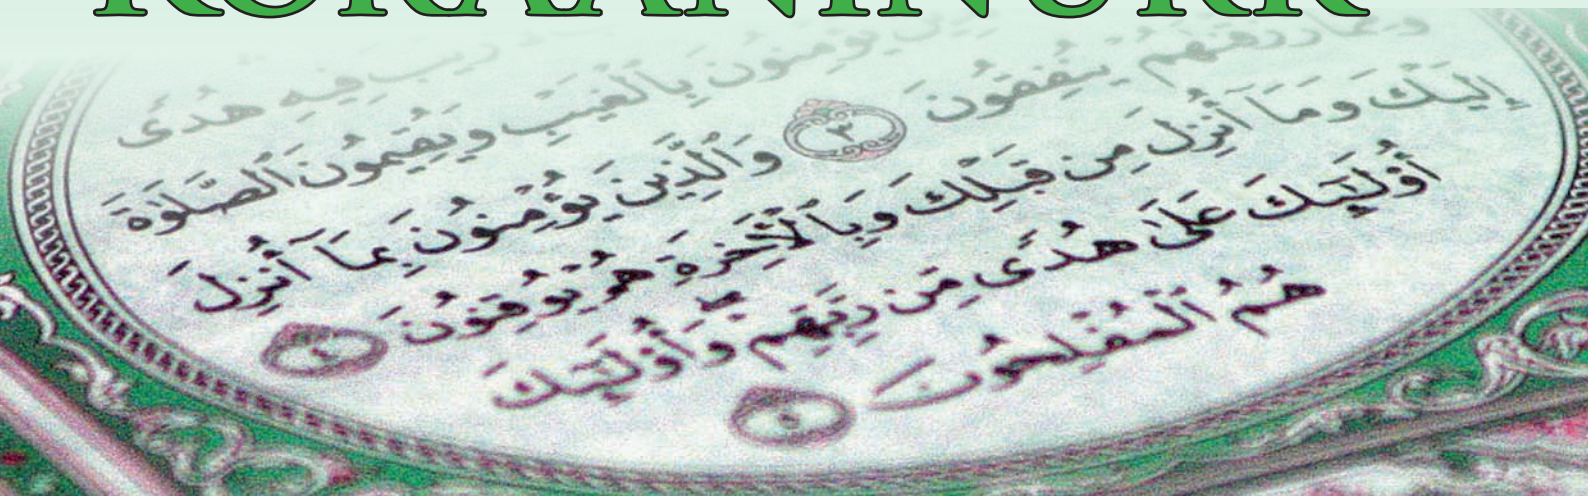 رَيْبَ فِيهِ هُدًى
يُؤْمِنُونَ بِٱلْغَيْبِ وَيُقِيمُونَ ٱلصَّلَوٰةَ
وَمِمَّا رَزَقْنَٰهُمْ يُنفِقُونَ ٣ وَٱلَّذِينَ يُؤْمِنُونَ بِمَآ أُنزِلَ
إِلَيْكَ وَمَآ أُنزِلَ مِن قَبْلِكَ وَبِٱلْأَخِرَةِ هُمْ يُوقِنُونَ ٤
أُو۟لَٰٓئِكَ عَلَىٰ هُدًى مِّن رَّبِّهِمْ وَأُو۟لَٰٓئِكَ
هُمُ ٱلْمُفْلِحُونَ ٥